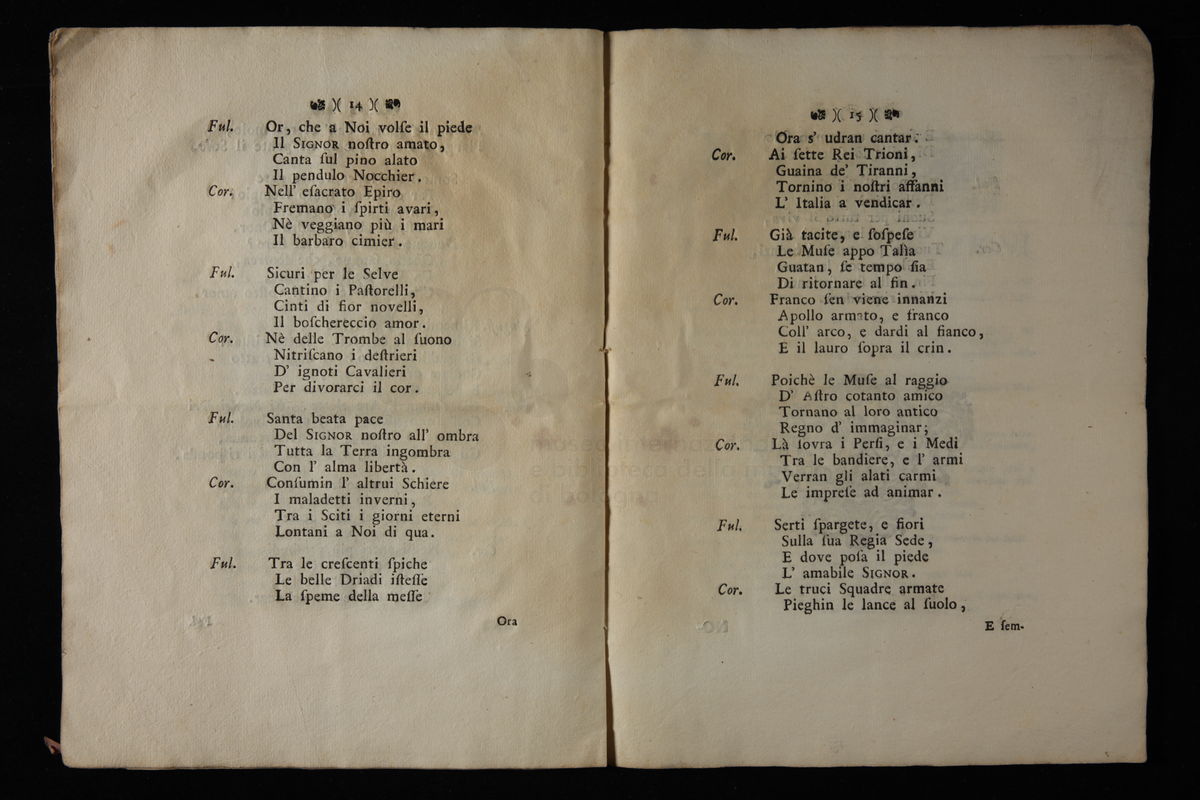 )( 14 )(
Ful. Or, che a Noi volſe il piede
Il SIGNOR noſtro amato,
Canta ſul pino alato
Il pendulo Nocchier.
Cor. Nell' eſacrato Epiro
Fremano i ſpirti avari,
Nè veggiano più i mari
Il barbaro cimier.
Ful. Sicuri per le Selve
Cantino i Paſtorelli,
Cinti di fior novelli,
Il boſchereccio amor.
Cor. Nè delle Trombe al ſuono
Nitriſcano i deſtrieri
D' ignoti Cavalieri
Per divorarci il cor.
Ful. Santa beata pace
Del SIGNOR noſtro all' ombra
Tutta la Terra ingombra
Con l' alma libertà.
Cor. Conſumin l' altrui Schiere
I maladetti inverni,
Tra i Sciti i giorni eterni
Lontani a Noi di qua.
Ful. Tra le creſcenti ſpiche
Le belle Driadi iſteſſe
La ſpeme della meſſe
Ora
)( 15 )(
Ora s' udran cantar.
Cor. Ai ſette Rei Trioni,
Guaina de' Tiranni,
Tornino i noſtri affanni
L' Italia a vendicar.
Ful. Già tacite, e ſoſpeſe
Le Muſe appo Talìa
Guatan, ſe tempo ſia
Di ritornare al fin.
Cor. Franco ſen viene innanzi
Apollo armato, e franco
Coll' arco, e dardi al fianco,
E il lauro ſopra il crin.
Ful. Poichè le Muſe al raggio
D' Aſtro cotanto amico
Tornano al loro antico
Regno d' immaginar;
Cor. Là ſovra i Perſi, e i Medi
Tra le bandiere, e l' armi
Verran gli alati carmi
Le impreſe ad animar.
Ful. Serti ſpargete, e fiori
Sulla ſua Regia Sede,
E dove poſa il piede
L' amabile SIGNOR.
Cor. Le truci Squadre armate
Pieghin le lance al ſuolo,
E ſem-
museo internazionale
e biblioteca della musica
di bologna